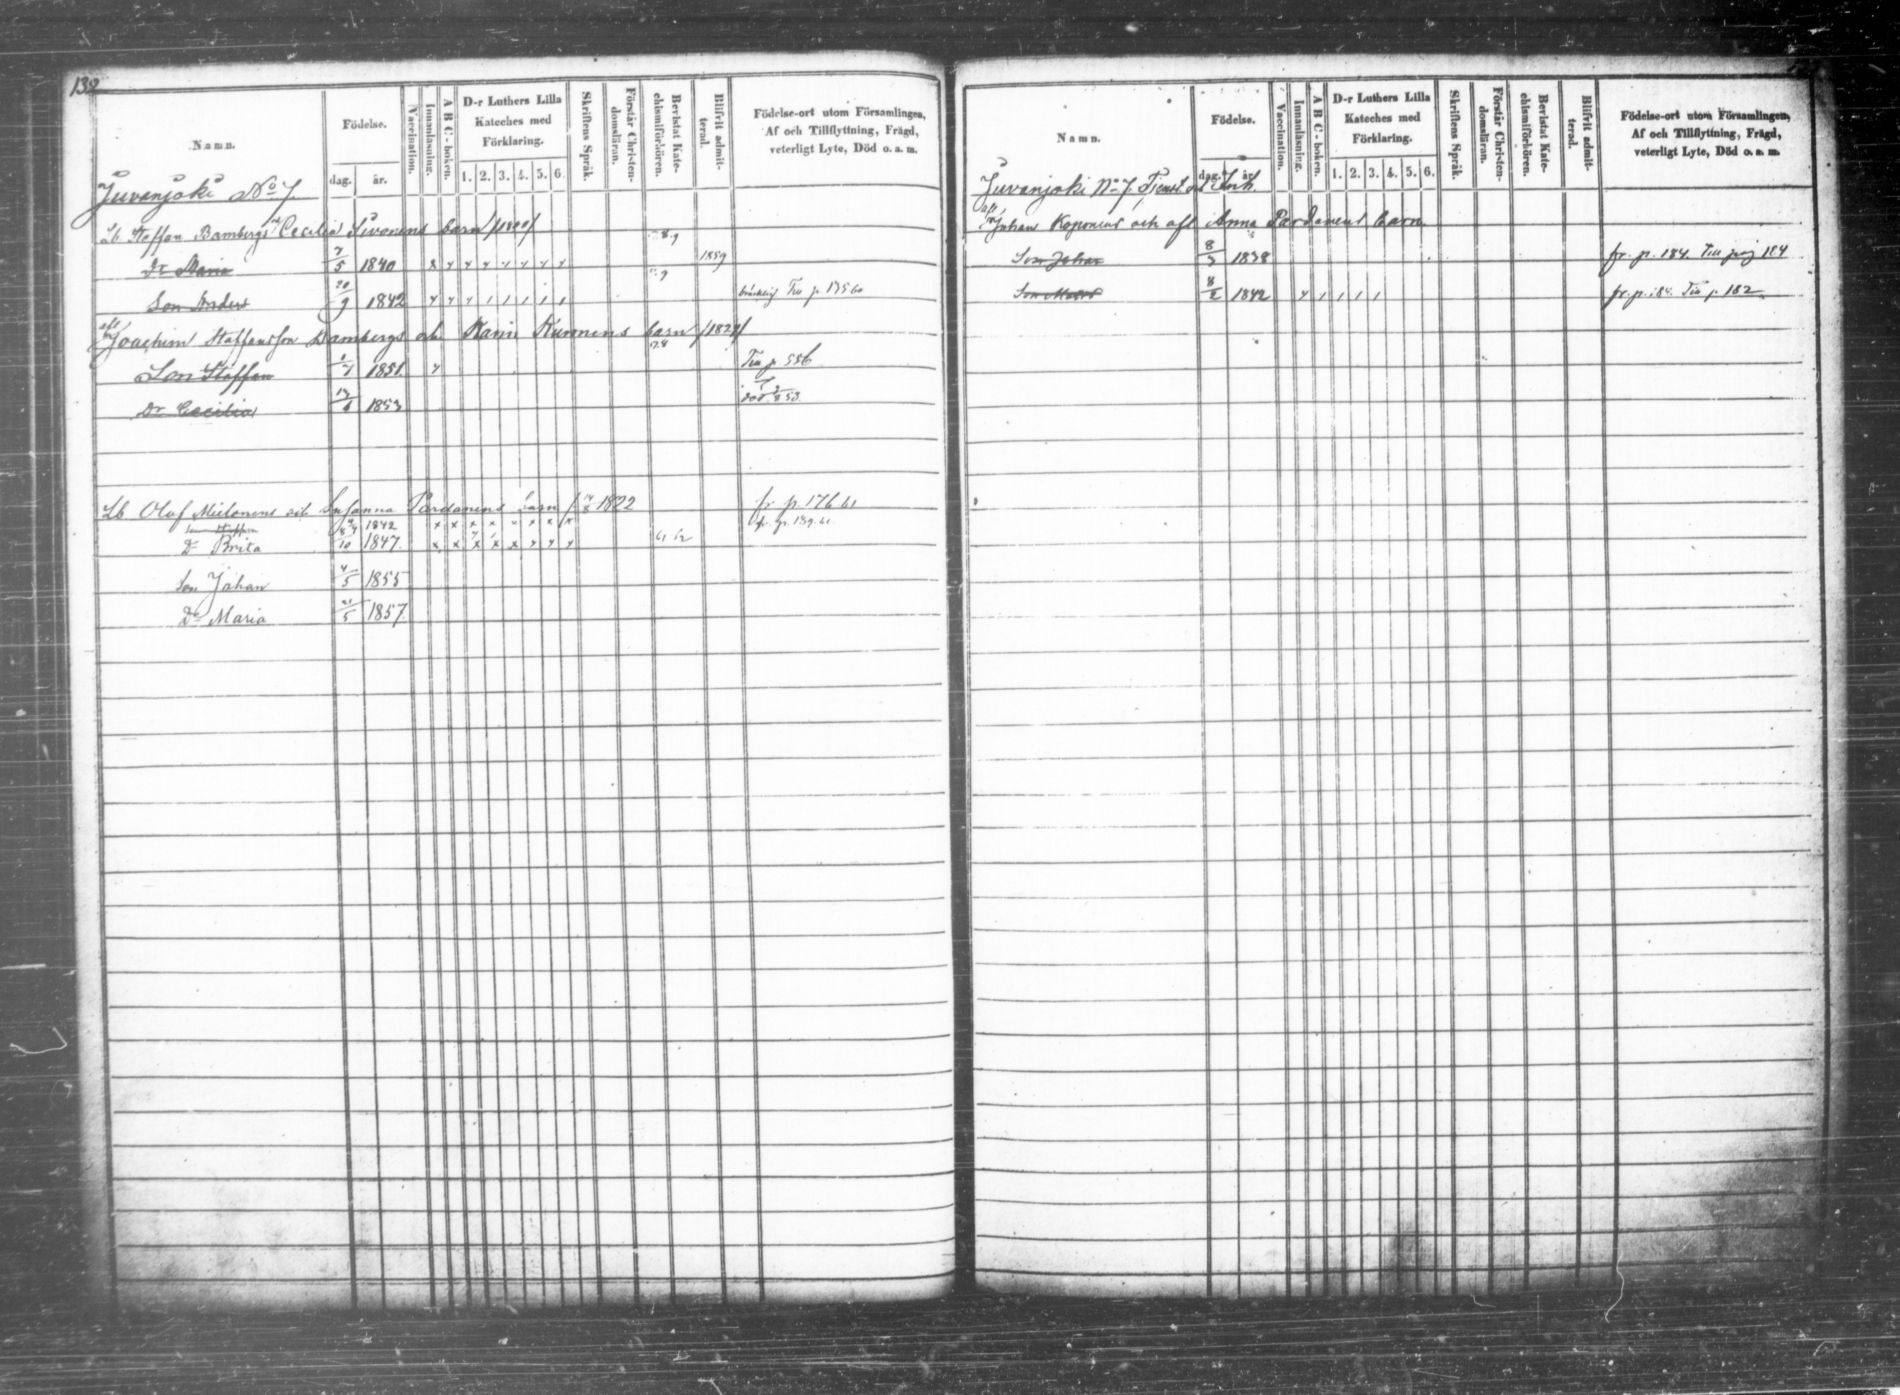 138
Namn.
Födelse.
dag.
år.
Vaccination.
Innanläsning.
A B C-boken.
D-r Luthers Lilla
Kateches med
Förklaring.
1. 2. 3. 4. 5. 6.
Skriftens Språk.
Förstår Christen-
domsläran.
Bevistat Kate-
chismiförhören.
Blifvit admit-
terad.
Födelse-ort utom Församlingen,
Af och Tillflyttning, Frägd,
veterligt Lyte, Död o. a. m.
Juvanjoki No 7.
Lb. Staffan Bambergs och Cecilia Sivonens barn
Dr Maria 7/5 1840 1859
Son Anders 20/9 1842 Till p.
Joachim Staffansson Bambergs och Karin barn
Son Staffan 1851. Till p. 556
Dr Cecilia 1853 död
Lb Olof Mielonens och Susanna Pardanens barn 1822 fr p. 176 61
Son Staffan 1842 fr. p. 189. 61.
Dr Brita 1847. 61 62
Son Johan 4/5 1855
Dr Maria 21/5 1857.
Namn.
Födelse.
dag.
år.
Vaccination.
Innanläsning.
A B C-boken.
D-r Luthers Lilla
Kateches med
Förklaring.
1. 2. 3. 4. 5. 6.
Skriftens Språk.
Förstår Christen-
domsläran.
Bevistat Kate-
chismiförhören.
Blifvit admit-
terad.
Födelse-ort utom Församlingen,
Af och Tillflyttning, Frägd,
veterligt Lyte, Död o. a. m.
Juvanjoki No 7. Tjenst och Inh.
Johan Koponens och afl. Anna Pardanens barn.
Son Johan 8/3 1838 fr. p. 184. Till pag 184
Son 8/2 1842 fr. p. 184. Till p. 182.